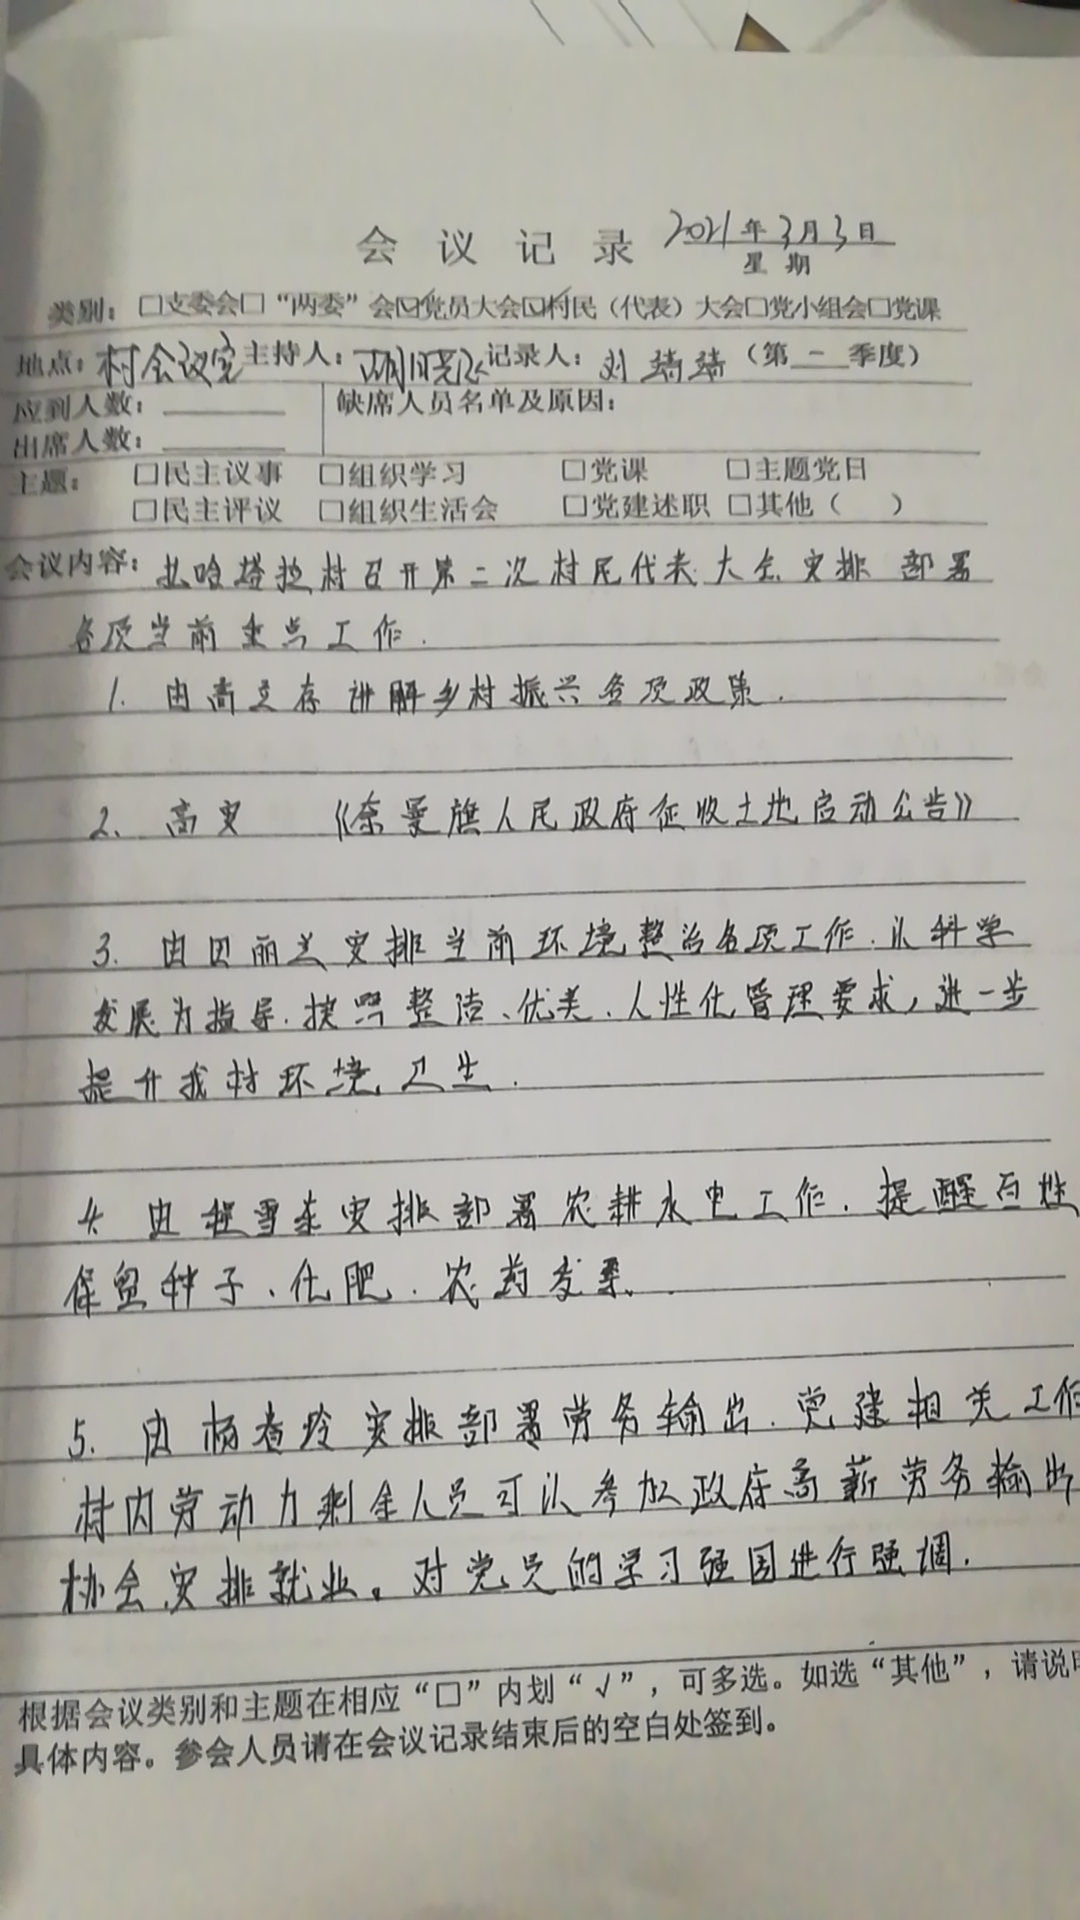 会议记录 2021年3月3日
星期
类别：□支委会□“两委”会☑党员大会☑村民（代表）大会□党小组会□党课
地点：村会议室 主持人： 记录人：刘靖靖（第一季度）
应到人数： 缺席人员名单及原因：
出席人数：
主题： □民主议事 □组织学习 □党课 □主题党日
□民主评议 □组织生活会 □党建述职 □其他（ ）
会议内容：扎哈塔拉村召开第二次村民代表大会安排部署
各项当前重点工作.
1. 由高立存讲解乡村振兴各项政策.
2. 高安 《奈曼旗人民政府征收土地启动公告》
3. 由田丽兰安排当前环境整治各项工作.以科学
发展为指导.按照整洁、优美、人性化管理要求，进一步
提升我村环境卫生.
4. 由程雪东安排部署农耕水电工作.提醒百姓
保留种子、化肥.农药发票.
5. 由杨春玲安排部署劳务输出.党建相关工作
村内劳动力剩余人员可以参加政府高薪劳务输出
协会安排就业。对党员的学习强国进行强调.
根据会议类别和主题在相应“□”内划“√”，可多选。如选“其他”，请说明
具体内容。参会人员请在会议记录结束后的空白处签到。